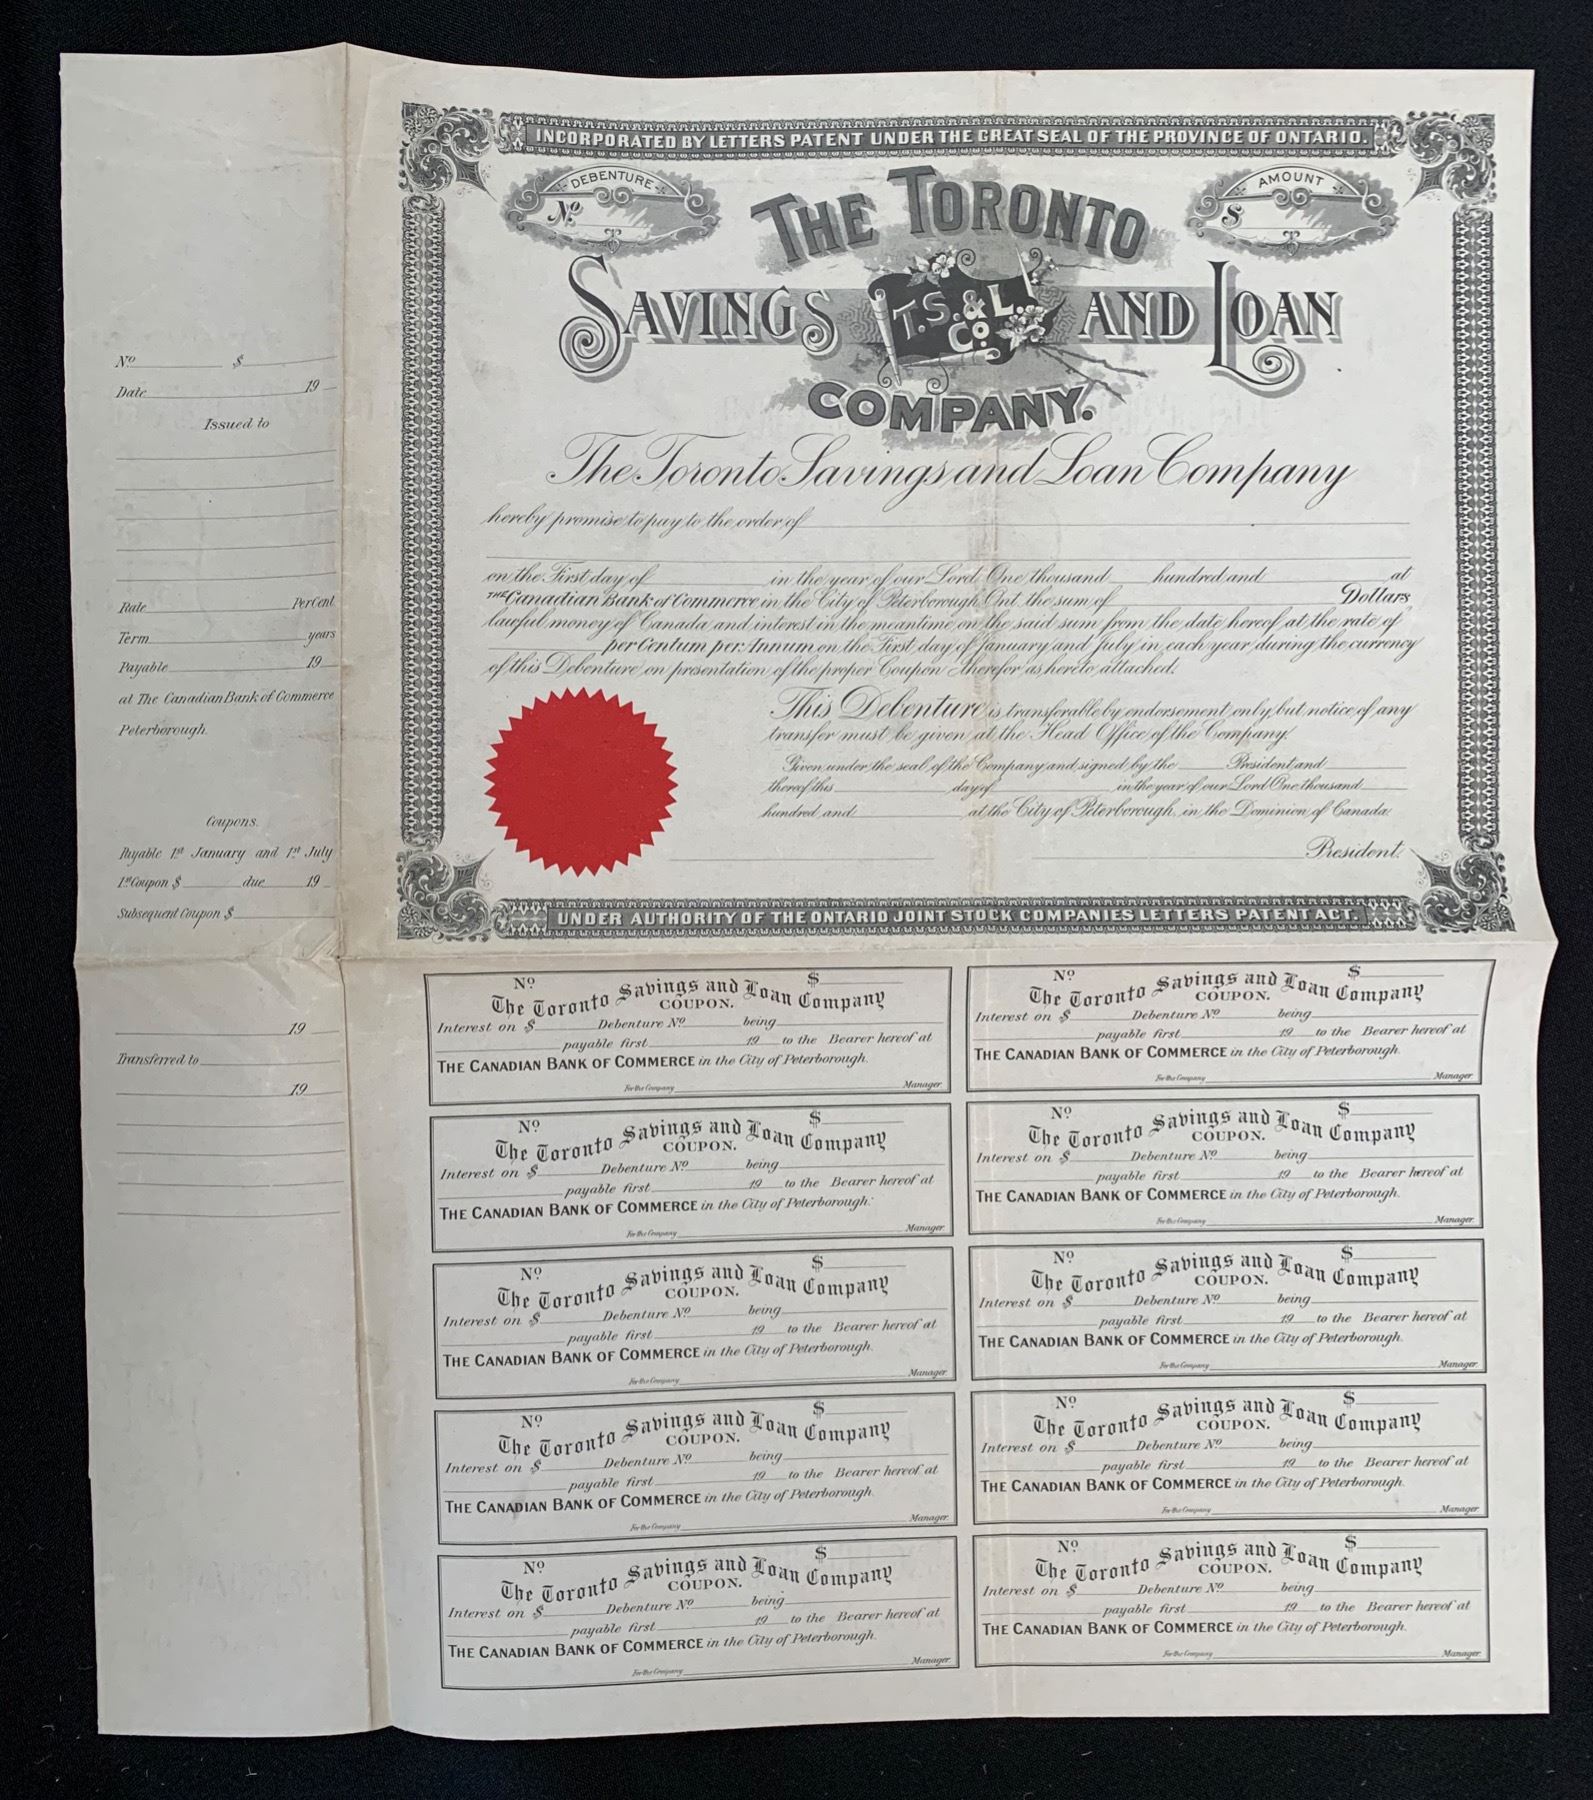 INCORPORATED BY LETTERS PATENT UNDER THE GREAT SEAL OF THE PROVINCE OF ONTARIO.
DEBENTURE
No
AMOUNT
$
THE TORONTO
SAVINGS AND LOAN
T.S.&L.
Co.
COMPANY.
The Toronto Savings and Loan Company
hereby promise to pay to the order of
on the First day of in the year of our Lord One thousand hundred and at
THE Canadian Bank of Commerce in the City of Peterborough Ont. the sum of Dollars
lawful money of Canada and interest in the meantime on the said sum from the date hereof at the rate of
per Centum per Annum on the First day of January and July in each year during the currency
of this Debenture on presentation of the proper Coupon therefor as hereto attached.
This Debenture is transferable by endorsement only, but notice of any
transfer must be given at the Head Office of the Company.
Given under the seal of the Company and signed by the President and
thereof this day of in the year of our Lord One thousand
hundred and at the City of Peterborough, in the Dominion of Canada.
President.
UNDER AUTHORITY OF THE ONTARIO JOINT STOCK COMPANIES LETTERS PATENT ACT.
No $
Date 19
Issued to
Rate Per Cent
Term years
Payable 19
at The Canadian Bank of Commerce
Peterborough.
Coupons.
Payable 1st January and 1st July
1st Coupon $ due 19
Subsequent Coupon $
19
Transferred to
19
No $
The Toronto Savings and Loan Company
COUPON.
Interest on $ Debenture No being
payable first 19 to the Bearer hereof at
THE CANADIAN BANK OF COMMERCE in the City of Peterborough.
For the Company Manager.
No $
The Toronto Savings and Loan Company
COUPON.
Interest on $ Debenture No being
payable first 19 to the Bearer hereof at
THE CANADIAN BANK OF COMMERCE in the City of Peterborough.
For the Company Manager.
No $
The Toronto Savings and Loan Company
COUPON.
Interest on $ Debenture No being
payable first 19 to the Bearer hereof at
THE CANADIAN BANK OF COMMERCE in the City of Peterborough.
For the Company Manager.
No $
The Toronto Savings and Loan Company
COUPON.
Interest on $ Debenture No being
payable first 19 to the Bearer hereof at
THE CANADIAN BANK OF COMMERCE in the City of Peterborough.
For the Company Manager.
No $
The Toronto Savings and Loan Company
COUPON.
Interest on $ Debenture No being
payable first 19 to the Bearer hereof at
THE CANADIAN BANK OF COMMERCE in the City of Peterborough.
For the Company Manager.
No $
The Toronto Savings and Loan Company
COUPON.
Interest on $ Debenture No being
payable first 19 to the Bearer hereof at
THE CANADIAN BANK OF COMMERCE in the City of Peterborough.
For the Company Manager.
No $
The Toronto Savings and Loan Company
COUPON.
Interest on $ Debenture No being
payable first 19 to the Bearer hereof at
THE CANADIAN BANK OF COMMERCE in the City of Peterborough.
For the Company Manager.
No $
The Toronto Savings and Loan Company
COUPON.
Interest on $ Debenture No being
payable first 19 to the Bearer hereof at
THE CANADIAN BANK OF COMMERCE in the City of Peterborough.
For the Company Manager.
No $
The Toronto Savings and Loan Company
COUPON.
Interest on $ Debenture No being
payable first 19 to the Bearer hereof at
THE CANADIAN BANK OF COMMERCE in the City of Peterborough.
For the Company Manager.
No $
The Toronto Savings and Loan Company
COUPON.
Interest on $ Debenture No being
payable first 19 to the Bearer hereof at
THE CANADIAN BANK OF COMMERCE in the City of Peterborough.
For the Company Manager.